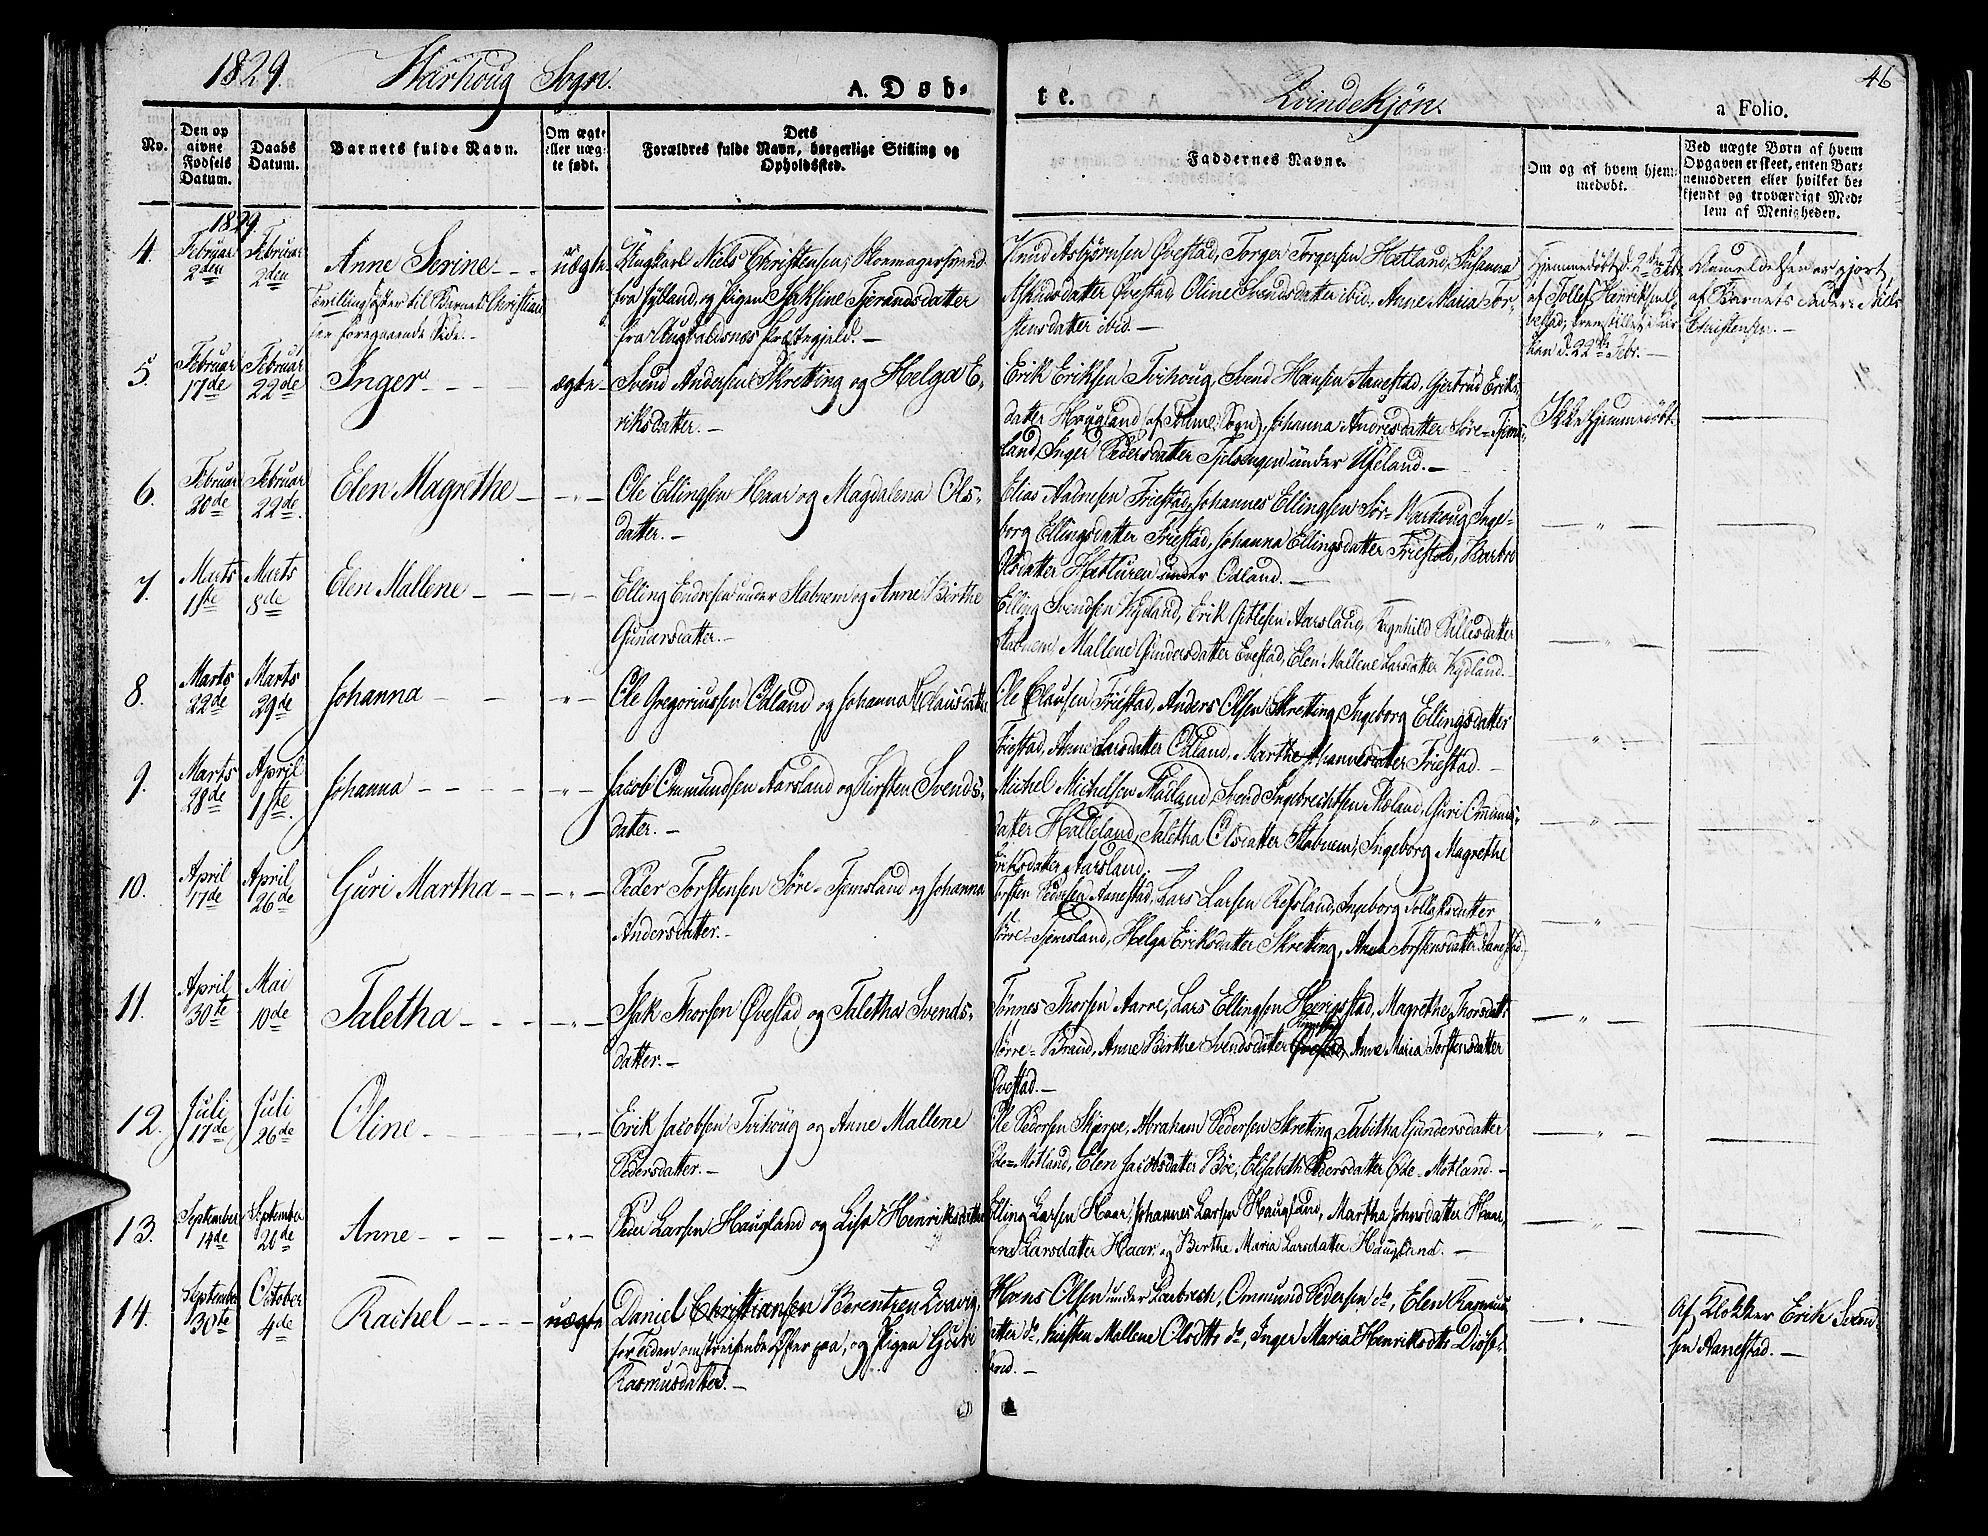 1829. Warhoug Sogn.
A. Døb-
te.
Qvindekjøn.
46
a Folio.
No.
Den op
givne
Fødsels
Datum.
Daabs
Datum.
Barnets fulde Navn.
Om ægte
eller uæg-
te født.
Dets
Forældres fulde Navn, borgerlige Stilling og
Opholdssted.
Faddernes Navne.
Om og af hvem hjem-
medøbt.
Ved uægte Børn af hvem
Opgaven er skeet, enten Bar-
nemoderen eller hvilket be-
kjendt og troværdigt Med-
lem af Menigheden.
1829
4. Februar 2den
Februar 2den
Anne Serine
Tvillingsøster til Barnet Christian
see foregaaende Side.
uægte
Ungkarl Niels Christensen, Skomagersvend
fra Jylland, og Pigen Jaksine Tjerandsdatter
fra Augvaldsnes Præstegjeld.
Knud Asbjørnsen Øvestad, Torger Torgersen Hatland, Susanna
Asludsdatter Øvestad, Oline Svendsdatter ibid, Anne Maria Tor-
stensdatter ibid.
Hjemmedøbt d. 2den Feb.
af Tollef Henriksen
bestad, fremstillet i Kir
ken d. 22de Febr.
Anmeldelsen er gjort
af Barnets Fader Niels
Christensen.
5. Februar 17de
Februar 22de
Inger
ægte
Svend Andersen Skretting og Helga E-
riksdatter.
Erik Eriksen Tvihoug, Svend Hansen Aanestad, Gjertrud Eriks-
datter Hougland (af Thime Sogn), Johanna Andersdatter Søre-Tjems-
land, Inger Pedersdatter Tjelsengen under Ueland.
Ikke hjemmedøbt.
6. Februar 20de
Februar 22de
Elen Magrethe
Ole Ellingsen Haar og Magdalena Ols-
datter.
Elias Aadnesen Friestad, Johannes Ellingsen Sør-Varhoug, Inge-
borg Ellingsdatter Friestad, Johanna Ellingsdatter Friestad, Barbro
Olsdatter Hatturen under Odland.
7. Marts 1ste
Marts 8de
Elen Mallene
Elling Endresen under Stavnem og Anne Birthe
Gunarsdatter.
Elling Svendsen Kydland, Erik Osttesen Aarsland, Ragnhild Pallesdatter
Stavnem, Mallene Gundersdatter Evestad, Elen Mallene Larsdatter Kydland.
8. Marts 22de
Marts 29de
Johanna
Ole Gregoriussen Odland og Johanna Clausdatter
Ole Clausen Friestad, Anders Olsen Skretting, Ingeborg Ellingsdatter
Friestad, Anne Larsdatter Odland, Marthe Johannesdatter Friestad.
9. Marts 28de
April 1ste.
Johanna
Jacob Ommundsen Aarsland og Kirsten Svends-
datter.
Michel Michelsen Madland, Svend Ingebrechtsen Mæland, Guri Ommunds-
datter Hølleland, Taletha Olsdatter Stavnem, Ingeborg Magrethe
Eriksdatter Aarsland.
10. April 17de
April 26de
Guri Martha
Peder Torstensen Søre-Tjemsland og Johanna
Andersdatter.
Torsten Pedersen Aanestad, Lars Larsen Refsland, Ingeborg Tollefsdatter
Søre-Tjemsland, Helga Eriksdatter Skretting, Anna Torstensdatter Aanestad
11. April 30te
Mai 10de
Taletha
Isak Thorsen Øvestad og Taletha Svends-
datter.
Tønnes Thorsen Aarre, Lars Ellingsen Hervigstad, Magrethe Thorsdatt
Nørre-Braud, Anne Birthe Svendsdatter Øvestad, Anne Maria Torstensdatter
Øvestad.
12. Juli 17de
Juli 26de
Oline
Erik Jacobsen Tvihoug og Anne Mallene
Pedersdatter.
Ole Pedersen Skjerpe, Abraham Pedersen Skretting, Tabitha Gundersdatter
Øde-Motland, Elen Jacobsdatter Bøe, Elisabeth Pedersdatter Øde-Motland.
13. September 14de
September 20de
Anne
Peder Larsen Haugland og Lisa Henriksdatter
Elling Larsen Haar, Johannes Larsen Haugland, Martha Johnsdatter Haar,
Larsdatter Haar og Berthe Maria Larsdatter Haugland.
14. September 30te
October 4de
Rachel
uægte
Daniel Christiansen Berentzen Qvavig,
for Tiden omstreifende Efter paa, og Pigen Guri
Rasmusdatter.
Hans Olsen under Laubrech, Ommund Pedersen do, Elen Rasmus-
datter do, Kirsten Mallene Olsdtr do, Inger Maria Henriksdtr Diøse-
land.
Af Klokker Erik Svend-
sen Aanestad.